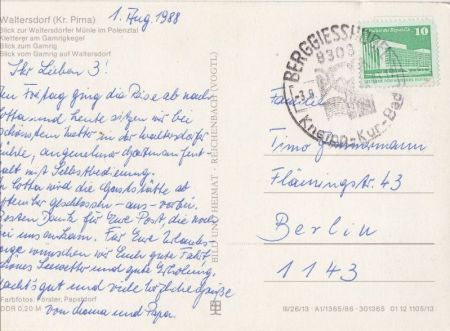 Waltersdorf (Kr. Pirna)
Blick zur Waltersdorfer Mühle im Polenztal
Kletterer am Gamrigkegel
Blick zum Gamrig
Blick vom Gamrig auf Waltersdorf
1. Aug. 1988
Ihr Lieben 3!
Am Freitag ging die Reise ab nach
Cotta und heute sitzen wir bei
schönstem Wetter in der Waltersdorfer
Mühle, angenehmer Gartenaufent-
halt mit Selbstbedienung.
In Cotta wird die Gaststätte ab
September geschlossen - aus - vorbei.
Besten Dank für Eure Post, die noch
bei uns ankam. Für Eure Urlaubs-
tage wünschen wir Euch gute Fahrt,
schönes Seewetter und gute Erholung.
Macht's gut und viele herzliche Grüße
von Mama und Papa.
Farbfotos: Förster, Papstdorf
DDR 0,20 M
BILD UND HEIMAT · REICHENBACH (VOGTL)
BERGGIESSHÜBEL
8303
Kneipp-Kur-Bad
10
Familie
Timo
Flämingstr. 43
Berlin
1143
III/26/13 A1/1365/86 301365 01 12 1105/13